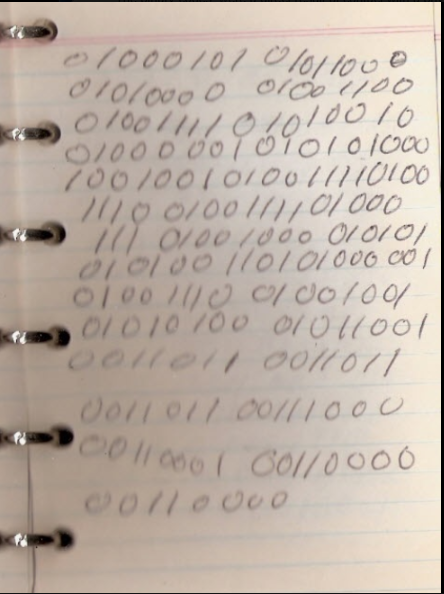 01000101 01011000
01010000 01001100
01001111 01010010
0100000101010101000
10010010100111110100
1110 0100111101000
111 01001000 010101
010100 110101000 001
01001110 01001001
01010100 01011001
0011011 0011011
0011011 00111000
00110001 00110000
00110000